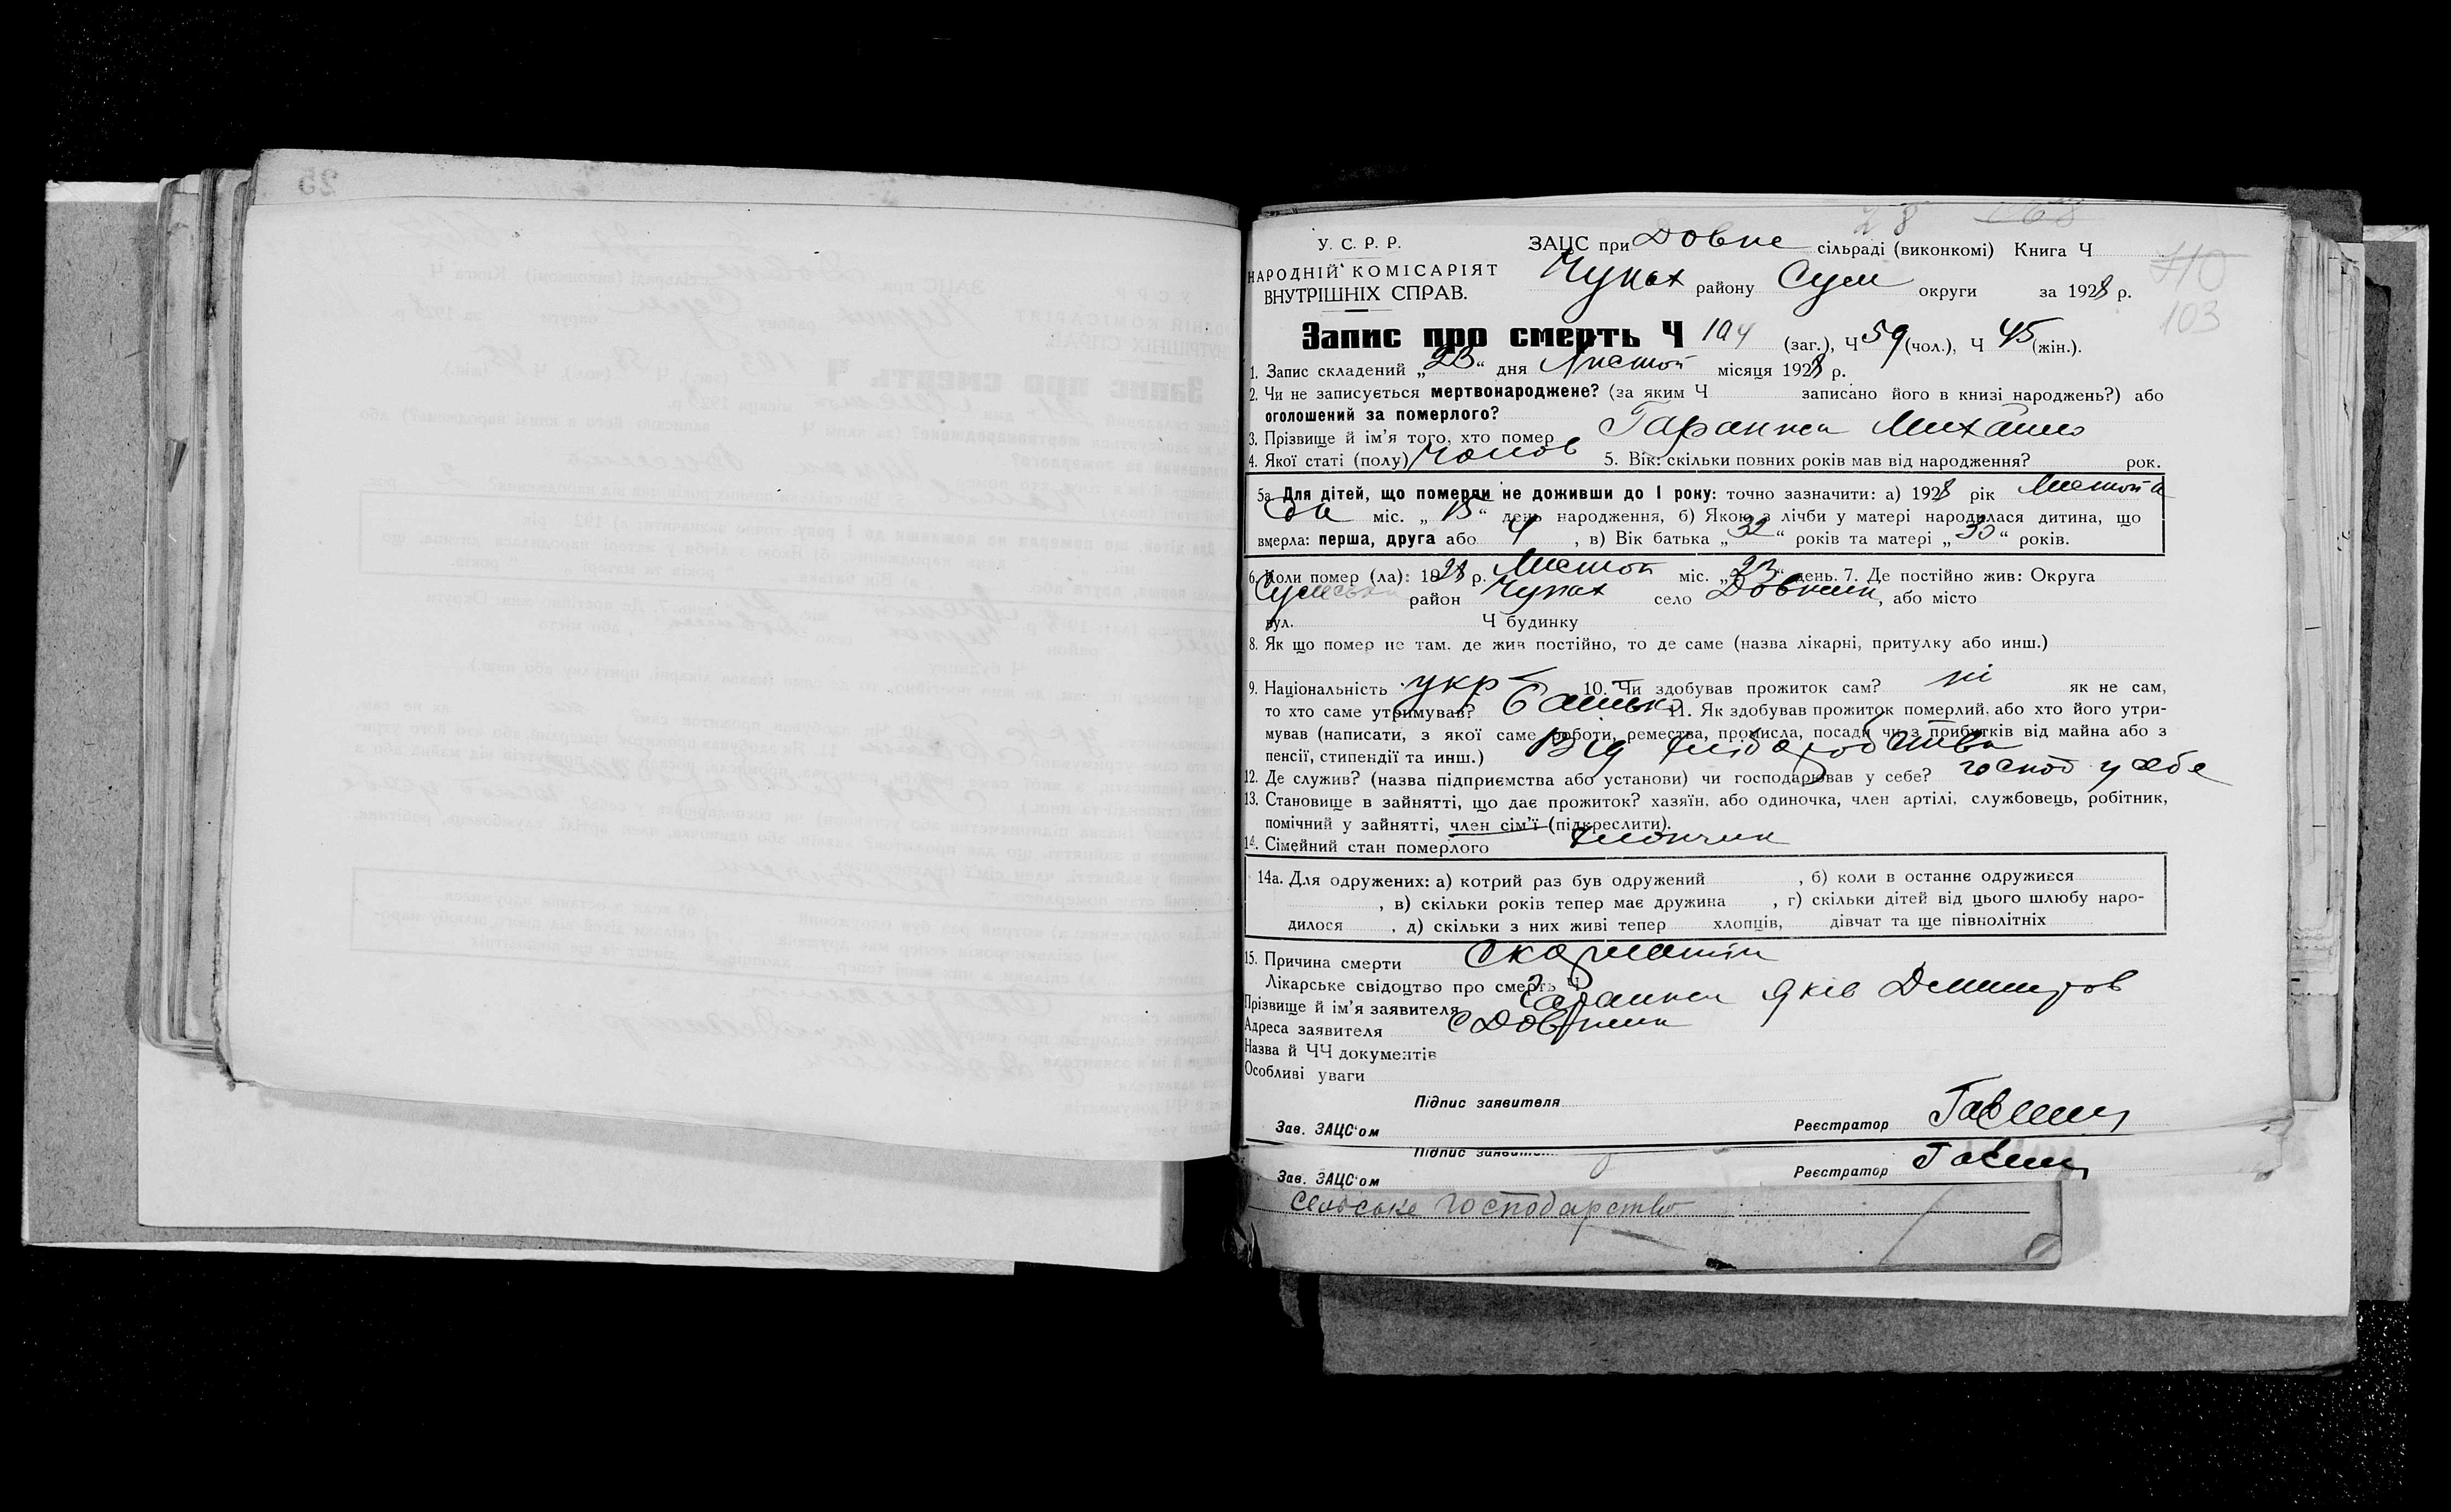 25
28
У. С. Р. Р.
НАРОДНІЙ КОМІСАРІЯТ
ВНУТРІШНІХ СПРАВ.
ЗАЦС при Довже сільраді (виконкомі) Книга Ч
Чупах району Сум округи за 1928 р.
110
103
Запис про смерть Ч 104 (заг.), Ч 59 (чол.), Ч 45 (жін.).
1. Запис складений „23“ дня Листоп місяця 1928 р.
2. Чи не записується мертвонароджене? (за яким Ч записано його в книзі народжень?) або
оголошений за померлого?
3. Прізвище й ім'я того, хто помер Гаранжа Михайло
4. Якої статі (полу) Чолов 5. Вік: скільки повних років мав від народження? рок.
5а. Для дітей, що померли не доживши до 1 року: точно зазначити: а) 1928 рік Листопа
да міс. „13“ день народження, б) Якою з лічби у матері народилася дитина, що
вмерла: перша, друга або 4, в) Вік батька „32“ років та матері „30“ років.
6. Коли помер (ла): 1928 р. Листоп міс. „23“ день. 7. Де постійно жив: Округа
Сумська район Чупах село Довжик, або місто
вул. Ч будинку
8. Як що помер не там, де жив постійно, то де саме (назва лікарні, притулку або инш.)
9. Національність укр 10. Чи здобував прожиток сам? ні як не сам,
то хто саме утримував? Батько 11. Як здобував прожиток померлий, або хто його утри-
мував (написати, з якої саме роботи, ремества, промисла, посади чи з прибутків від майна або з
пенсії, стипендії та инш.) Від хліборобства
12. Де служив? (назва підприємства або установи) чи господарював у себе? господ у себе
13. Становище в зайнятті, що дає прожиток? хазяїн, або одиночка, член артілі, службовець, робітник,
помічний у зайнятті, член сім'ї (підкреслити).
14. Сімейний стан померлого хлопчик
14а. Для одружених: а) котрий раз був одружений , б) коли в останнє одружився
, в) скільки років тепер має дружина , г) скільки дітей від цього шлюбу наро-
дилося , д) скільки з них живі тепер хлопців, дівчат та ще півнолітніх
15. Причина смерти Скарлатін
Лікарське свідоцтво про смерть Ч
Прізвище й ім'я заявителя Гаранжа Яків Дмитров
Адреса заявителя с Довжик
Назва й ЧЧ документів
Особливі уваги
Підпис заявителя
Зав. ЗАЦС'ом Реєстратор
Підпис заявителя
Зав. ЗАЦС'ом Реєстратор
Сельське господарство